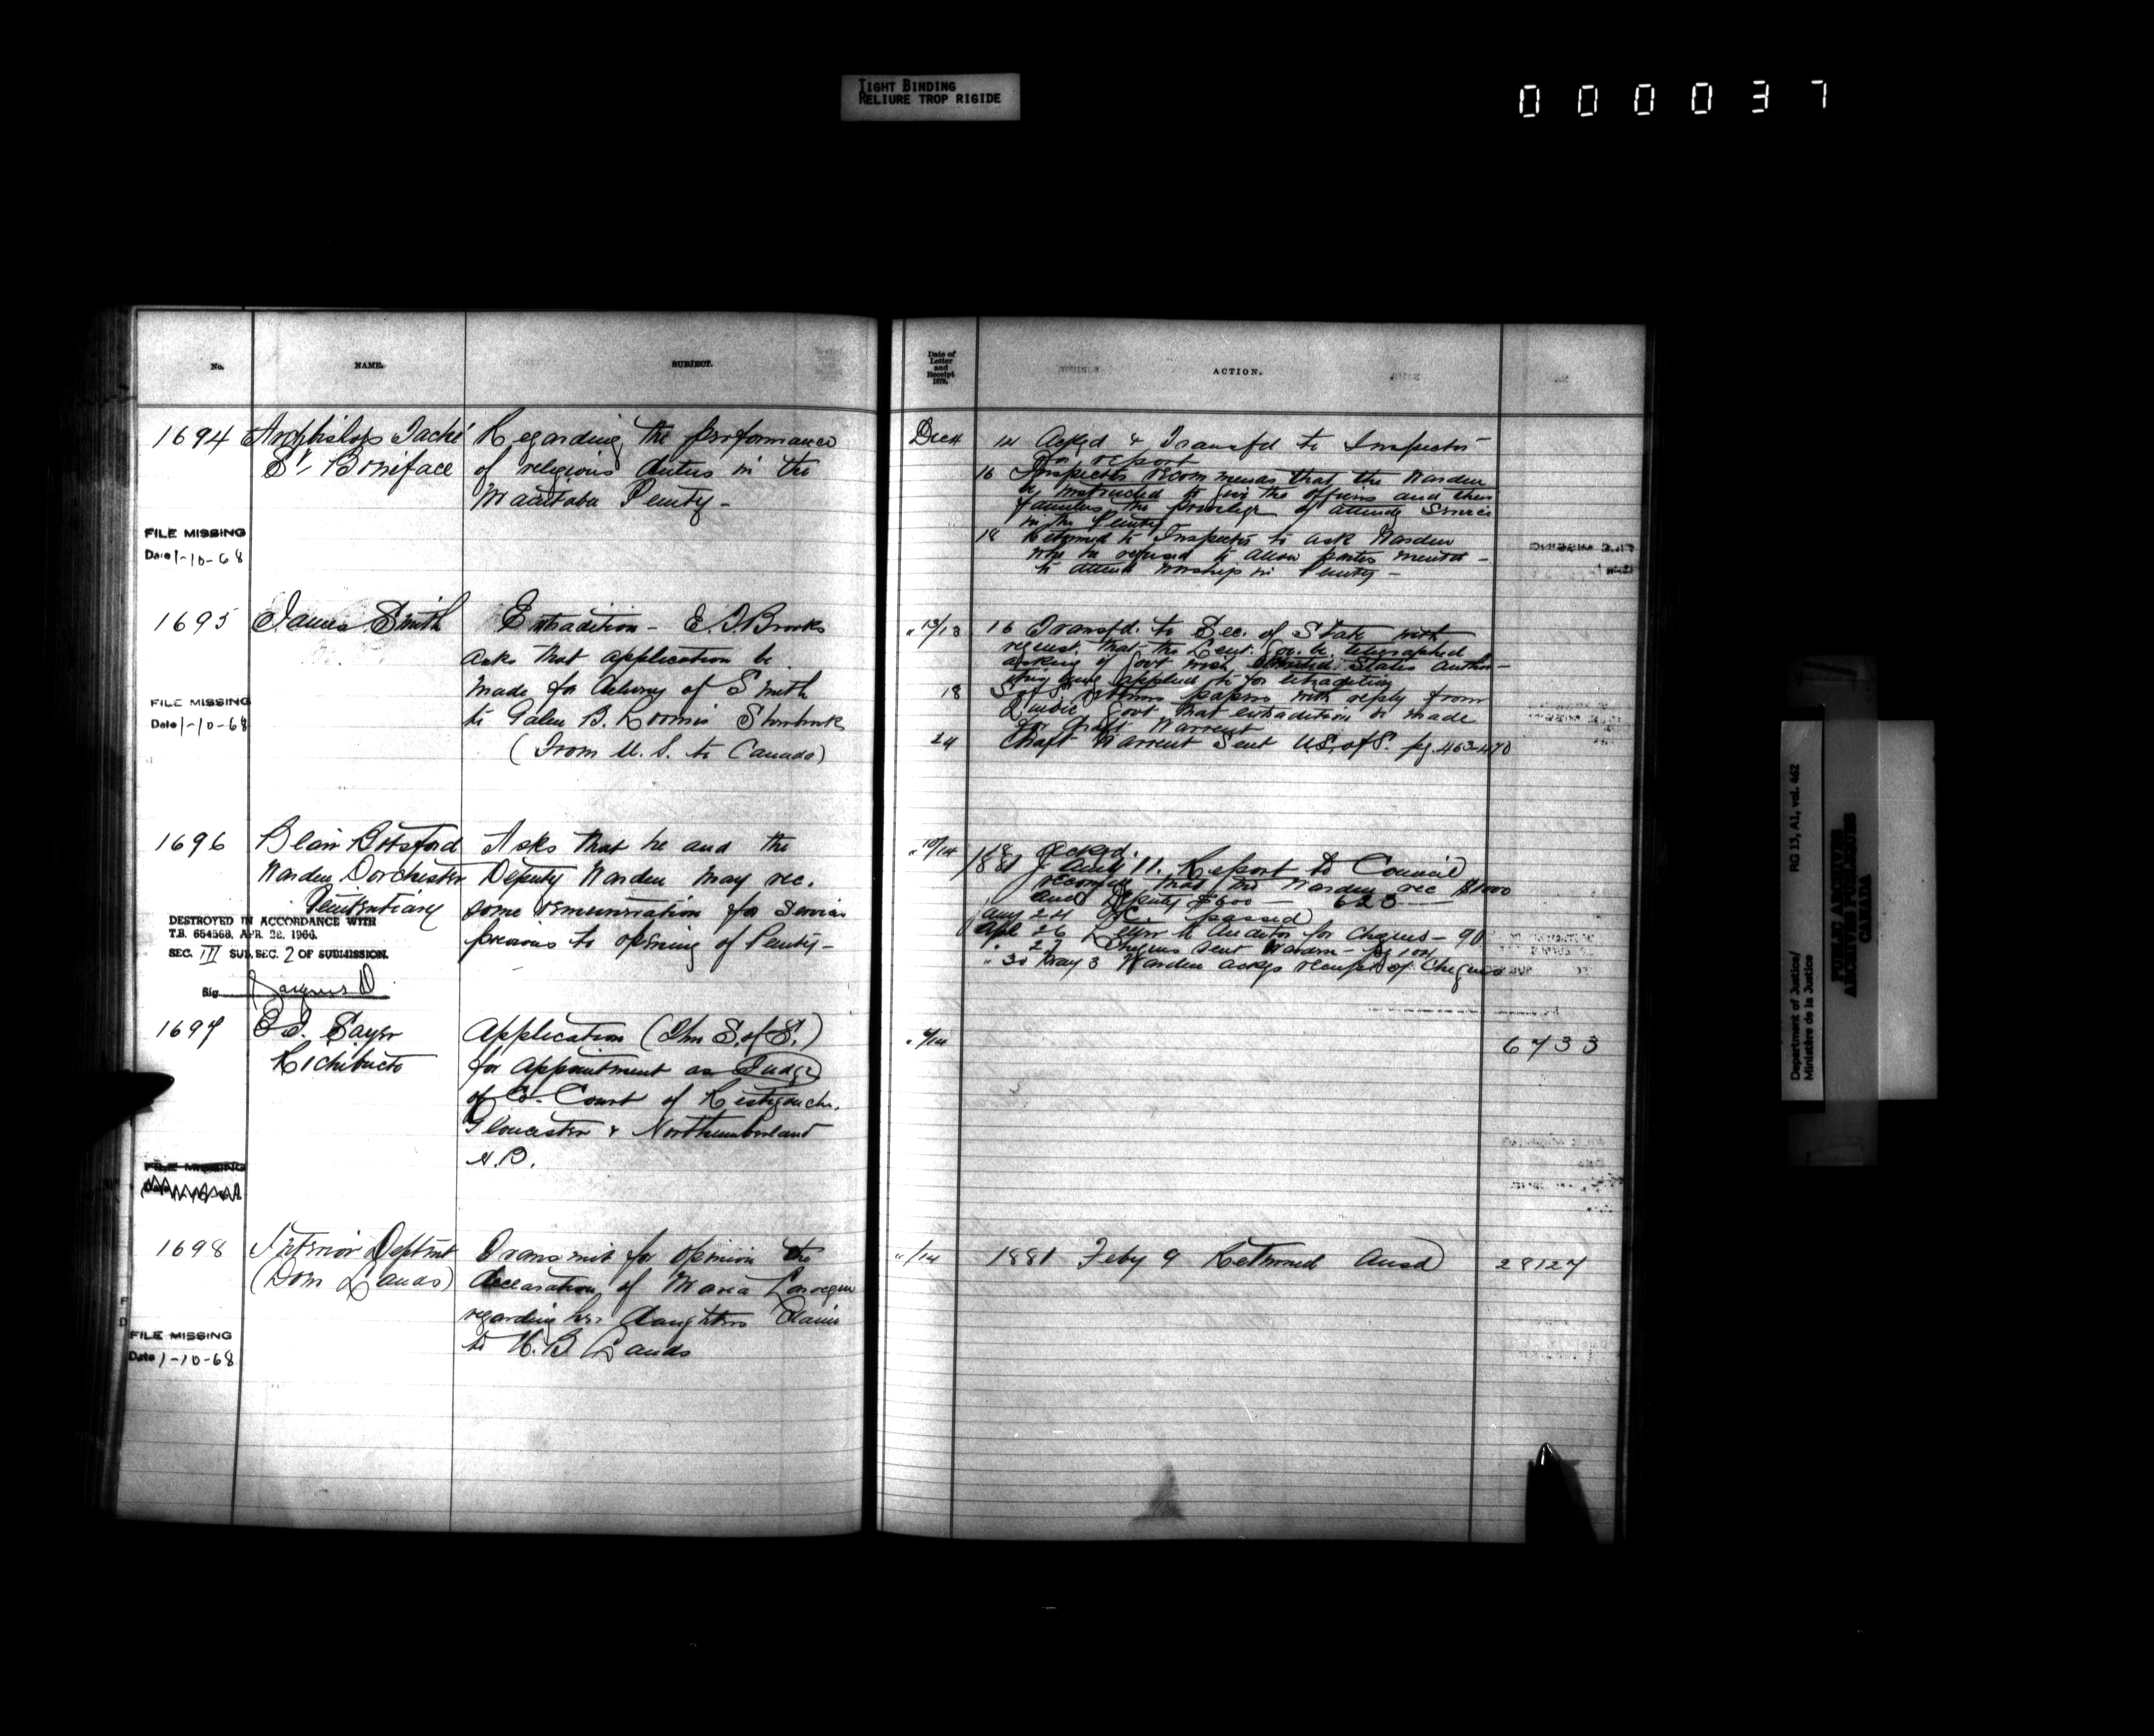 TIGHT BINDING
RELIURE TROP RIGIDE
000037
No.
NAME.
SUBJECT.
1694 Archbishop Taché Regarding the performance
St. Boniface of religious duties in the
Manitoba Penity -
FILE MISSING
Date 1-10-68
1695 James Smith Extradition - E. T. Brooks
asks that application be
made for delivery of Smith
FILE MISSING
to Galen B. Loomis Sherbrooke
Date 1-10-68
(From U. S. to Canada)
1696 Blair Botsford Asks that he and the
Warden Dorchester Deputy Warden may rec.
Penitentiary some remuneration for services
DESTROYED IN ACCORDANCE WITH
T.B. 654568, APR. 28, 1966.
previous to opening of Penity -
SEC. III SUB. SEC. 2 OF SUBMISSION.
Sig
1697 Sayer Application (Thro S. of S.)
Richibucto for appointment as Judge
of Co. Court of Restigouche,
Gloucester & Northumberland
N.B.
FILE MISSING
Date
1698 Interior Deptmt Transmit for opinion the
(Dom Lands) declaration of Maria
regarding her daughters claim
FILE MISSING
to H. B Lands
Date 1-10-68
Date of
Letter
and
Receipt
1879.
ACTION.
Dec 4 14 Ackgd & Transfd to Inspector
for report
16 Inspector recommends that the Warden
be instructed to give the officers and their
families the privilege of attendg service
in the Penity
18 Returned to Inspector to ask Warden
why he refused to allow parties mentd -
to attend worship in Penity -
" 13/13 16 Transfd. to Sec. of State with
request that the Lieut. Gov. be telegraphed
asking if Govt wish United States author-
ities applied to for extradition
18 S of S returns papers with reply from
Quebec Govt that extradition be made
for draft Warrent
24 Draft Warrent Sent U.S. of S. pg. 463-470
" 10/14 18 ackgd.
1881 Jany 11. Report to Council
recomg that the Warden rec $1000
and Deputy $600 - 623
Jany 24 O.C. passed
Apl 26 Letter to Auditor for cheques - 90
" 27 Cheques sent Warden - pg 104
" 30 May 3 Warden ackgs receipt of Cheques
" 9/14
6733
" /14 1881 Feby 9 Returned ansd
28127
Department of Justice/
Ministère de la Justice
RG 13, A1, vol. 462
PUBLIC ARCHIVES
ARCHIVES PUBLIQUES
CANADA